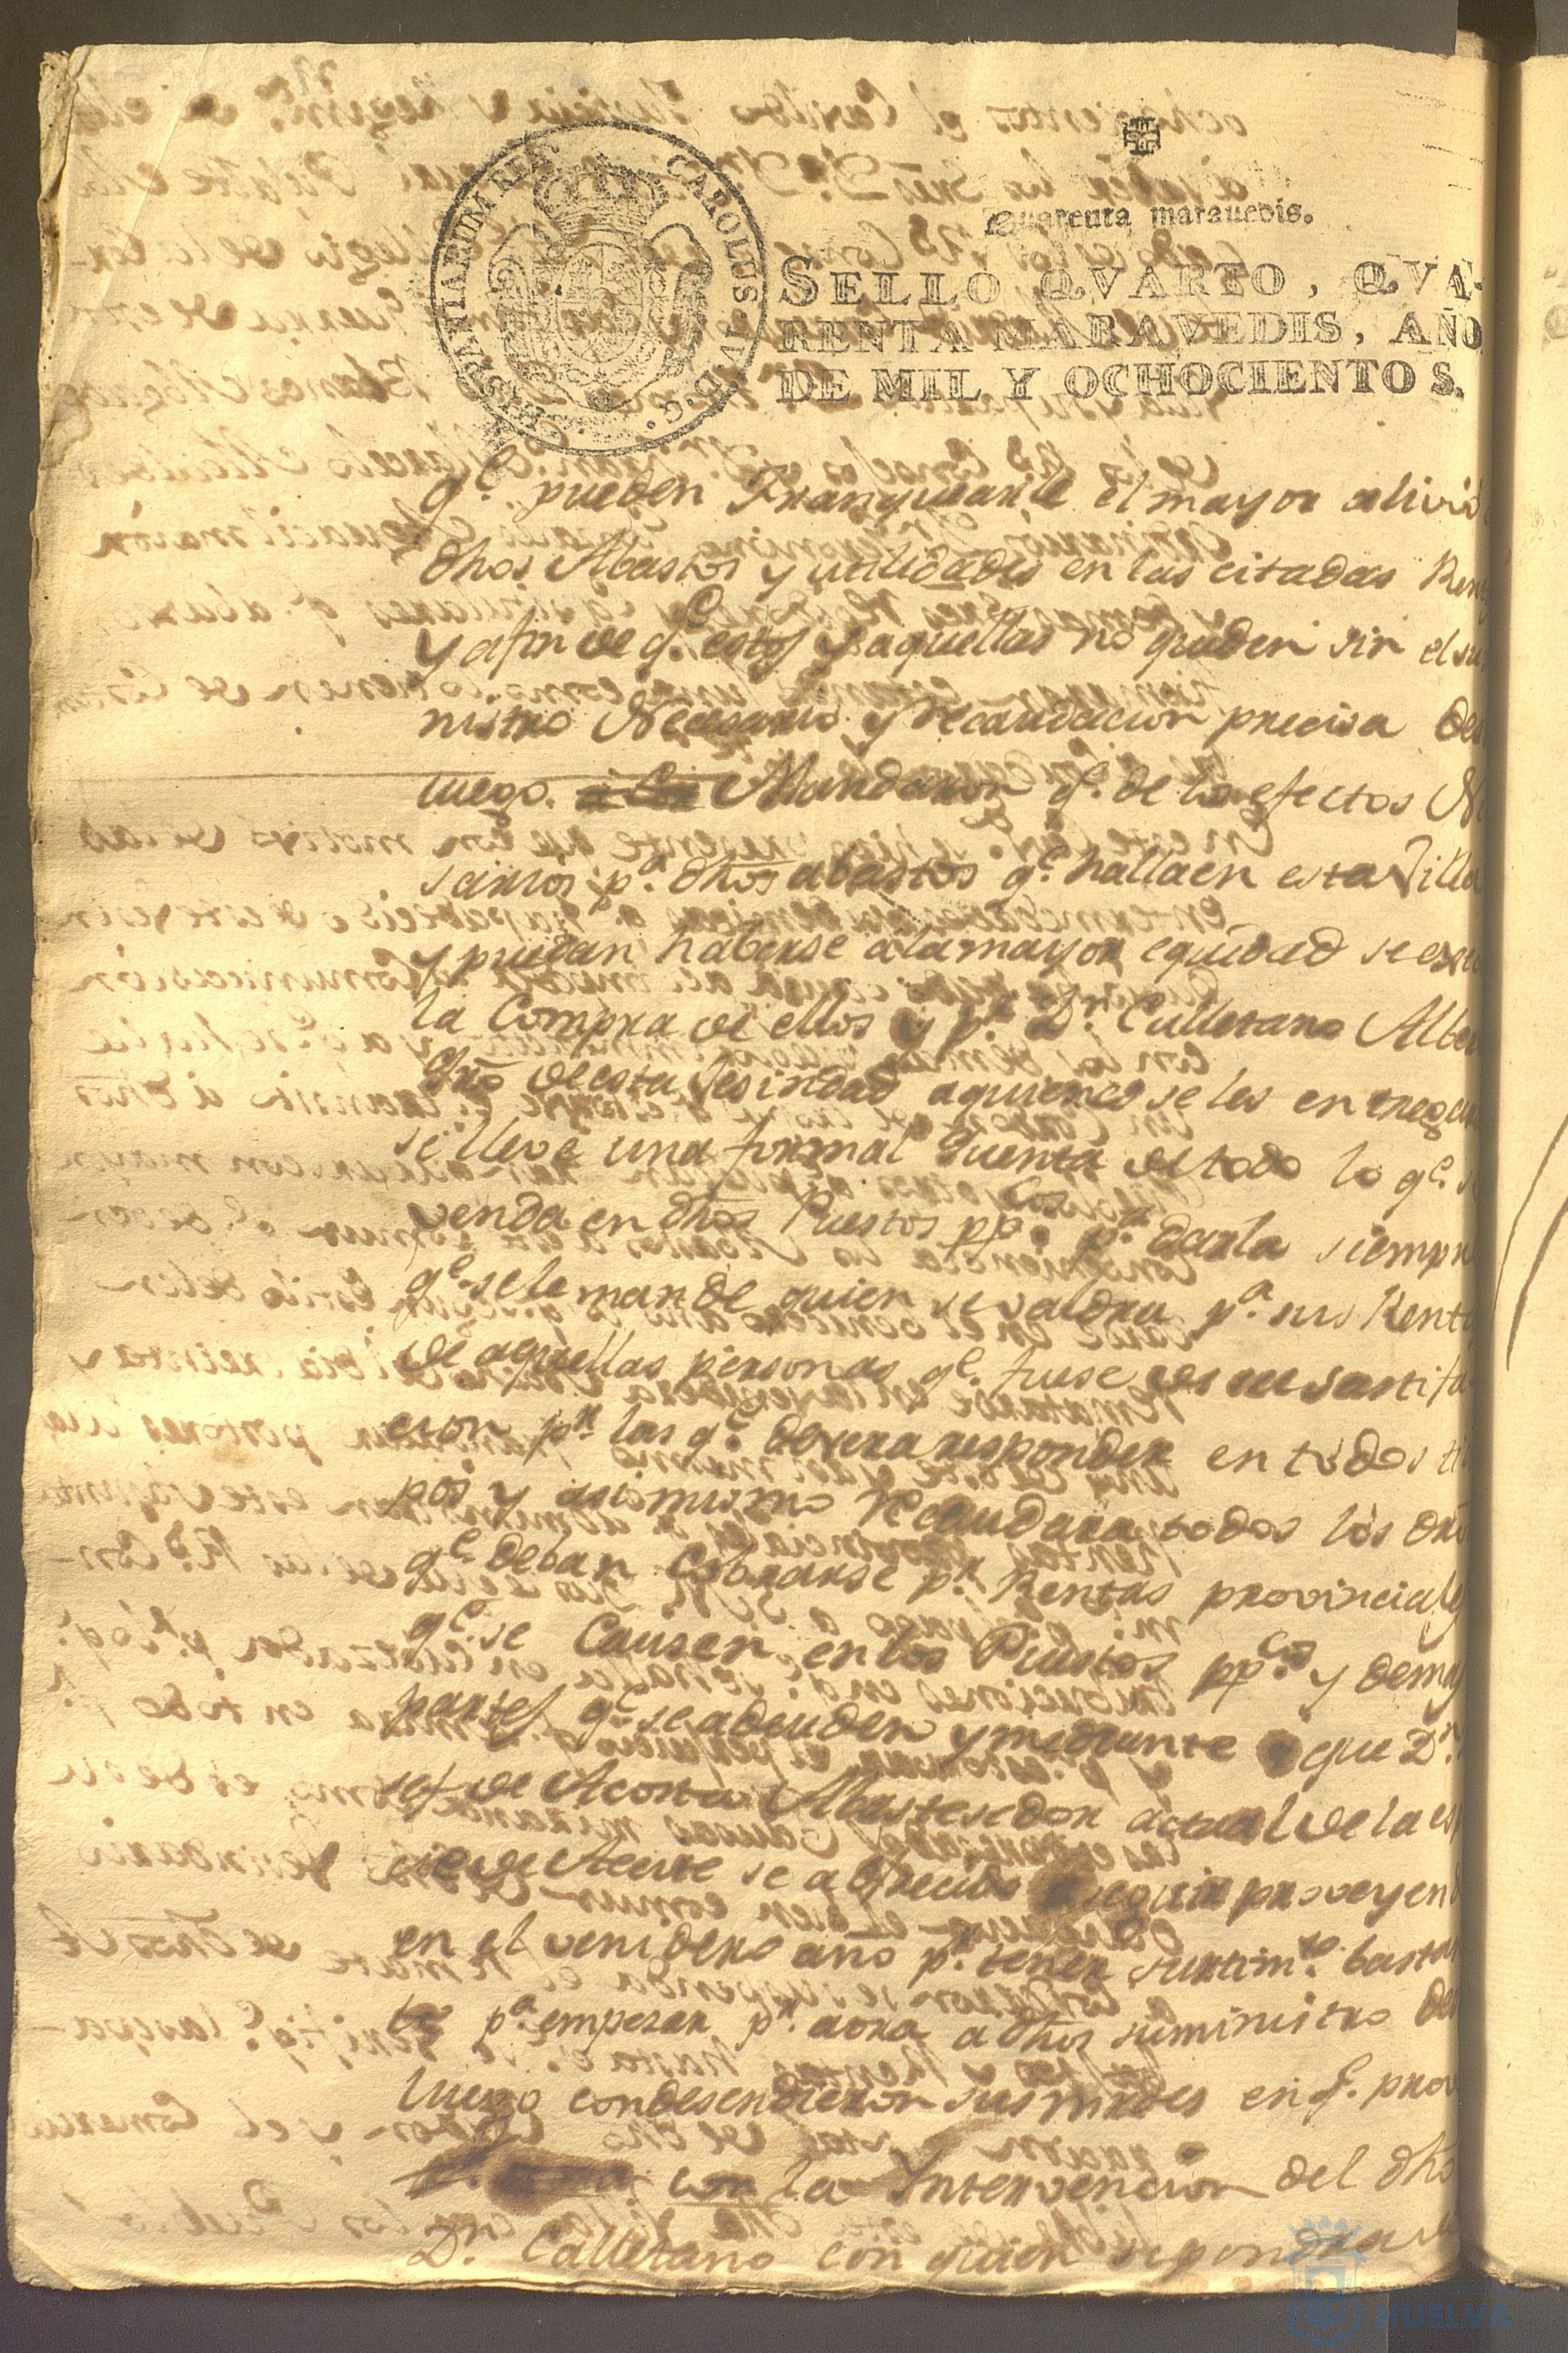 HISPANIARUM REX CAROLUS IV D. G.
Quarenta maravedis.
SELLO QVARTO, QVA-
RENTA MARAVEDIS, AÑO
DE MIL Y OCHOCIENTOS.
q.e pueden Franquearle el mayor alivio
dhos Abastos y utilidades en las citadas Ren
y afin de q.e estos y aquellas no queden sin el su
nistro Necesario y recaudacion precisa des
luego. Mandaron q.e de los efectos Ne
sarios p.a dhos abastos q.e halla en esta Villa
y puedan haberse a la mayor equidad se
la Compra de ellos y p.r D.n Calletano Albe
de esta Vesindad a quien se les entregu
se lleve una formal Quenta de todo lo q.e s
venda en dhos Puestos pp.cos p.a darla siempre
q.e se le mande quien se valdra p.a sus Rent
de aquellas personas q.e fuese de su sastifa
cion p.r las q.e devera responder en todos ti
pos y asimismo Recaudara todos los dro
q.e deban Cobrarse p.r Rentas provinciales
q.e se Causen en los Puestos pp.cos y demas
partes q.e se adeuden y mediante que D.n
sef de Acosta Abastesedor actual de la es
cie de Aceite se a ofrecido seguir proveyen
en el venidero año p.r tener surtim.to bastan
te p.a empesar p.r aora a dhos suministro de
luego condesendieron sus mrdes en q.e prov
con la Intervencion del dho
D.n Calletano con quien se pondra
HUELVA